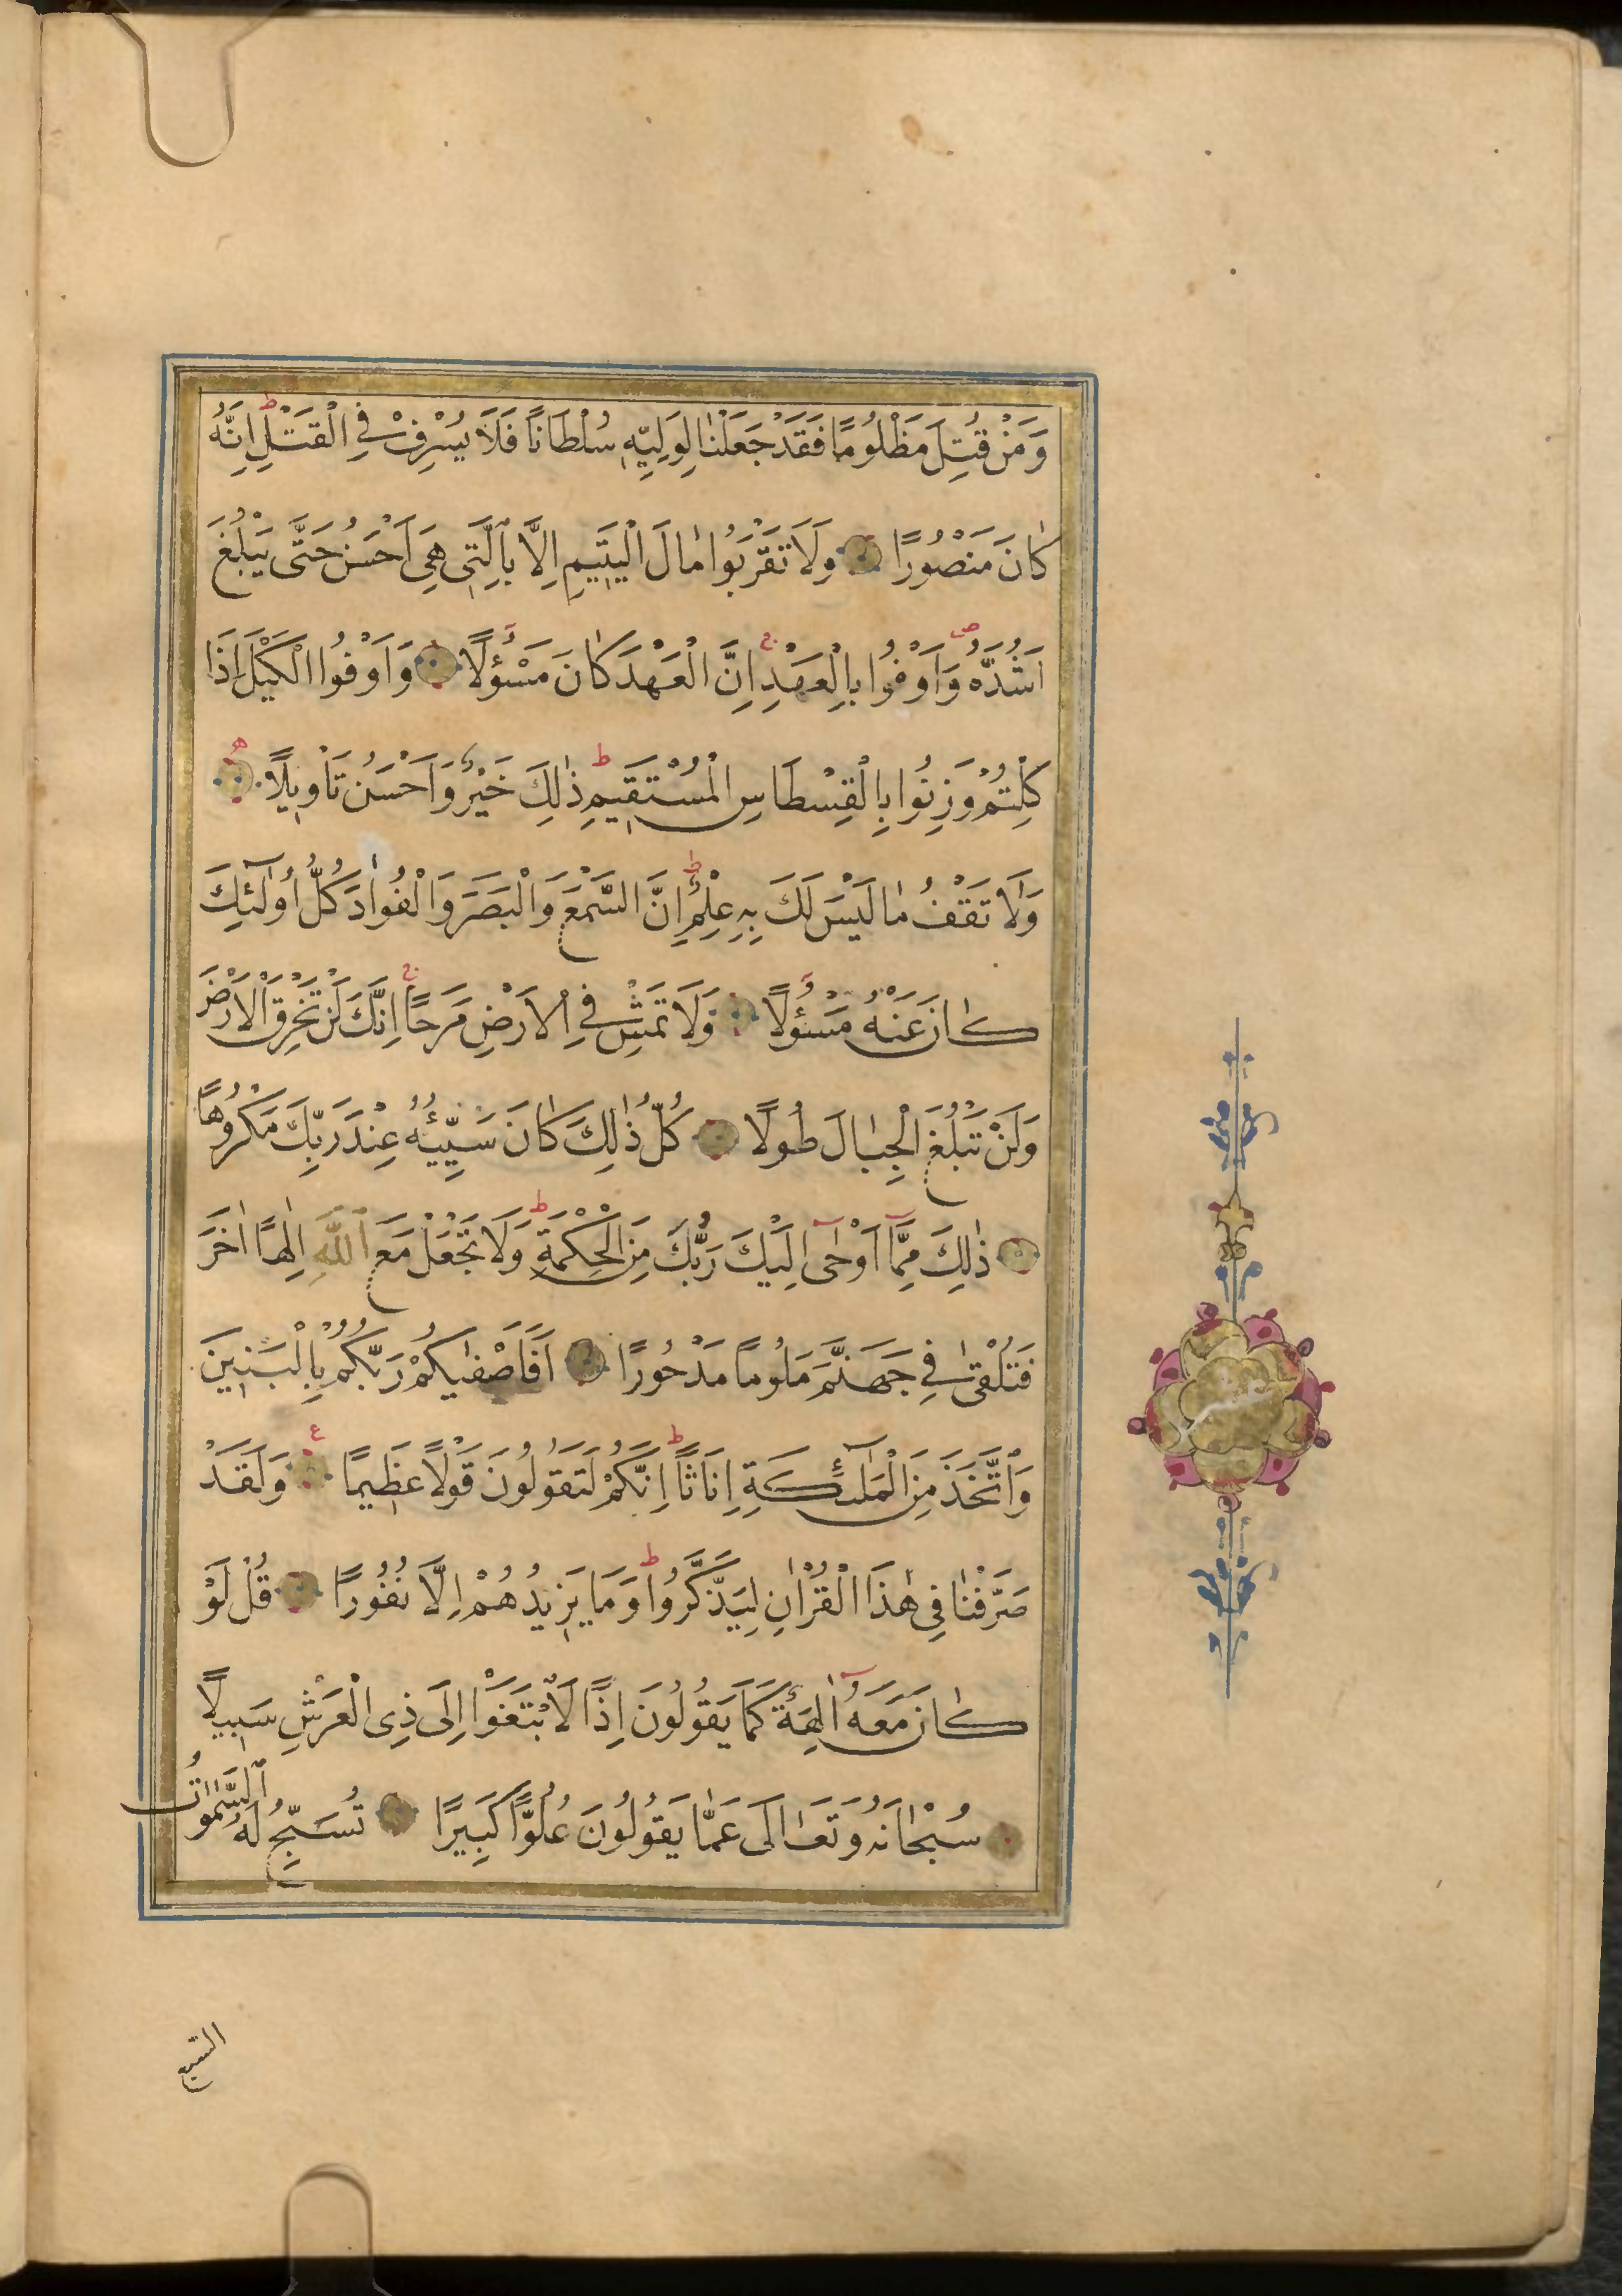 وَمَنْ قُتِلَ مَظْلُومًا فَقَدْ جَعَلْنَا لِوَلِيِّهٖ سُلْطَانًا فَلَا يُسْرِفْ فِي الْقَتْلِ ط اِنَّهُ
كَانَ مَنْصُورًا وَلَا تَقْرَبُوا مَالَ الْيَتٖيمِ اِلَّا بِالَّتٖي هِيَ اَحْسَنُ حَتّٰى يَبْلُغَ
اَشُدَّهُ ص وَاَوْفُوا بِالْعَهْدِ ج اِنَّ الْعَهْدَ كَانَ مَسْؤُلًا وَاَوْفُوا الْكَيْلَ اِذَا
كِلْتُمْ وَزِنُوا بِالْقِسْطَاسِ الْمُسْتَقٖيمِ ط ذٰلِكَ خَيْرٌ وَاَحْسَنُ تَاْوٖيلًا ه
وَلَا تَقْفُ مَا لَيْسَ لَكَ بِهٖ عِلْمٌ ط اِنَّ السَّمْعَ وَالْبَصَرَ وَالْفُوٰادَ كُلُّ اُولٰٓئِكَ
كَانَ عَنْهُ مَسْؤُلًا وَلَا تَمْشِ فِي الْاَرْضِ مَرَحًا ج اِنَّكَ لَنْ تَخْرِقَ الْاَرْضَ
وَلَنْ تَبْلُغَ الْجِبَالَ طُولًا كُلُّ ذٰلِكَ كَانَ سَيِّئُهُ عِنْدَ رَبِّكَ مَكْرُوهًا
ذٰلِكَ مِمَّٓا اَوْحٰٓى اِلَيْكَ رَبُّكَ مِنَ الْحِكْمَةِ ط وَلَا تَجْعَلْ مَعَ اللّٰهِ اِلٰهًا اٰخَرَ
فَتُلْقٰى فِي جَهَنَّمَ مَلُومًا مَدْحُورًا اَفَاَصْفٰيكُمْ رَبُّكُمْ بِالْبَنٖينَ
وَاتَّخَذَ مِنَ الْمَلٰٓئِكَةِ اِنَاثًا ط اِنَّكُمْ لَتَقُولُونَ قَوْلًا عَظٖيمًا ع وَلَقَدْ
صَرَّفْنَا فِي هٰذَا الْقُرْاٰنِ لِيَذَّكَّرُوا ط وَمَا يَزٖيدُهُمْ اِلَّا نُفُورًا قُلْ لَوْ
كَانَ مَعَهُٓ اٰلِهَةٌ كَمَا يَقُولُونَ اِذًا لَابْتَغَوْا اِلٰى ذِي الْعَرْشِ سَبٖيلًا
سُبْحَانَهُ وَتَعَالٰى عَمَّا يَقُولُونَ عُلُوًّا كَبٖيرًا تُسَبِّحُ لَهُ السَّمٰوَاتُ
السبع